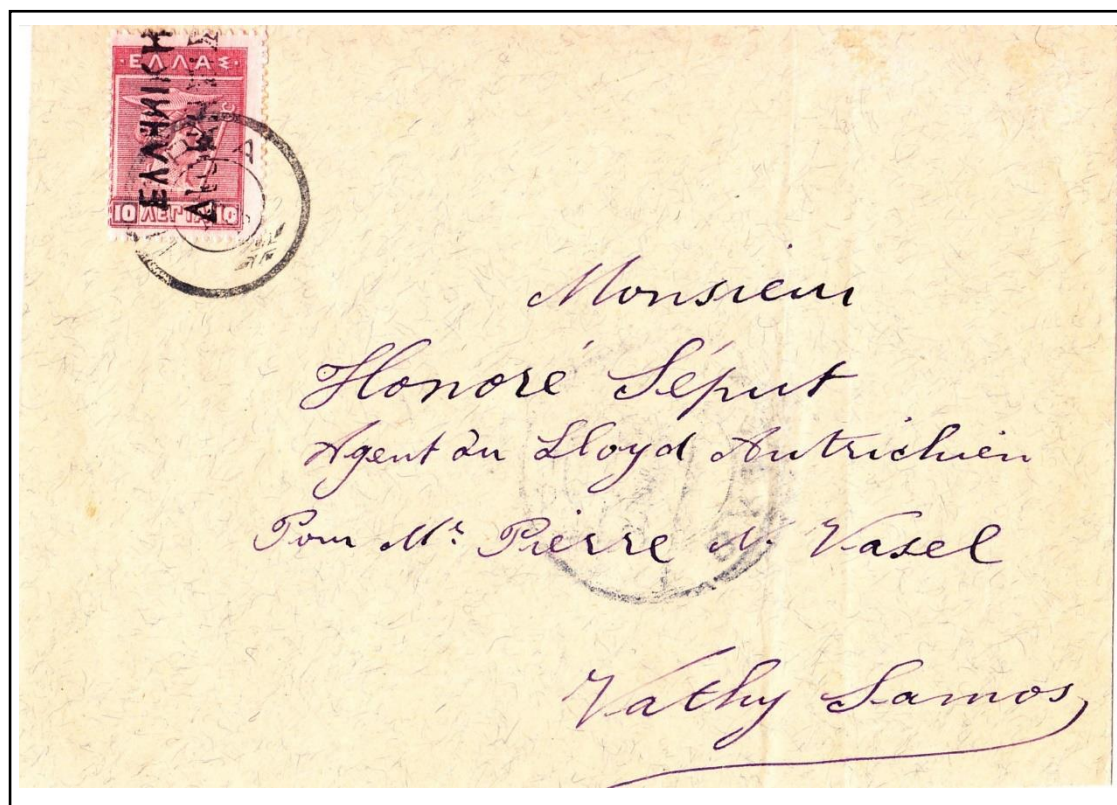 ΕΛΛΗΝΙΚΗ
ΕΛΛΑΣ
10 ΛΕΠΤΑ 10
Monsieur
Honoré Séput
Agent du Lloyd Autrichien
Pour Mr. Pierre N. Vasel
Vathy Samos